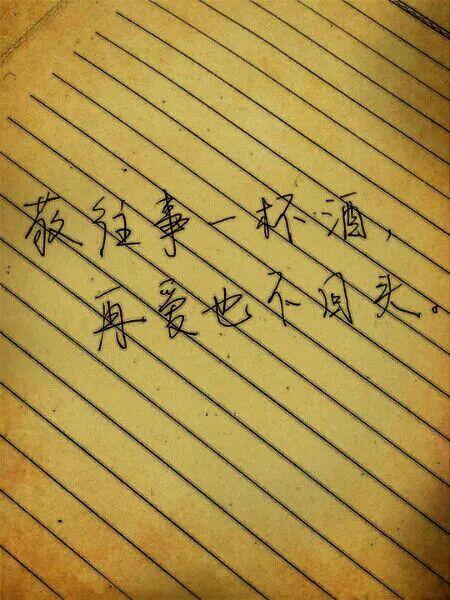 敬往事一杯酒，
再爱也不回头。